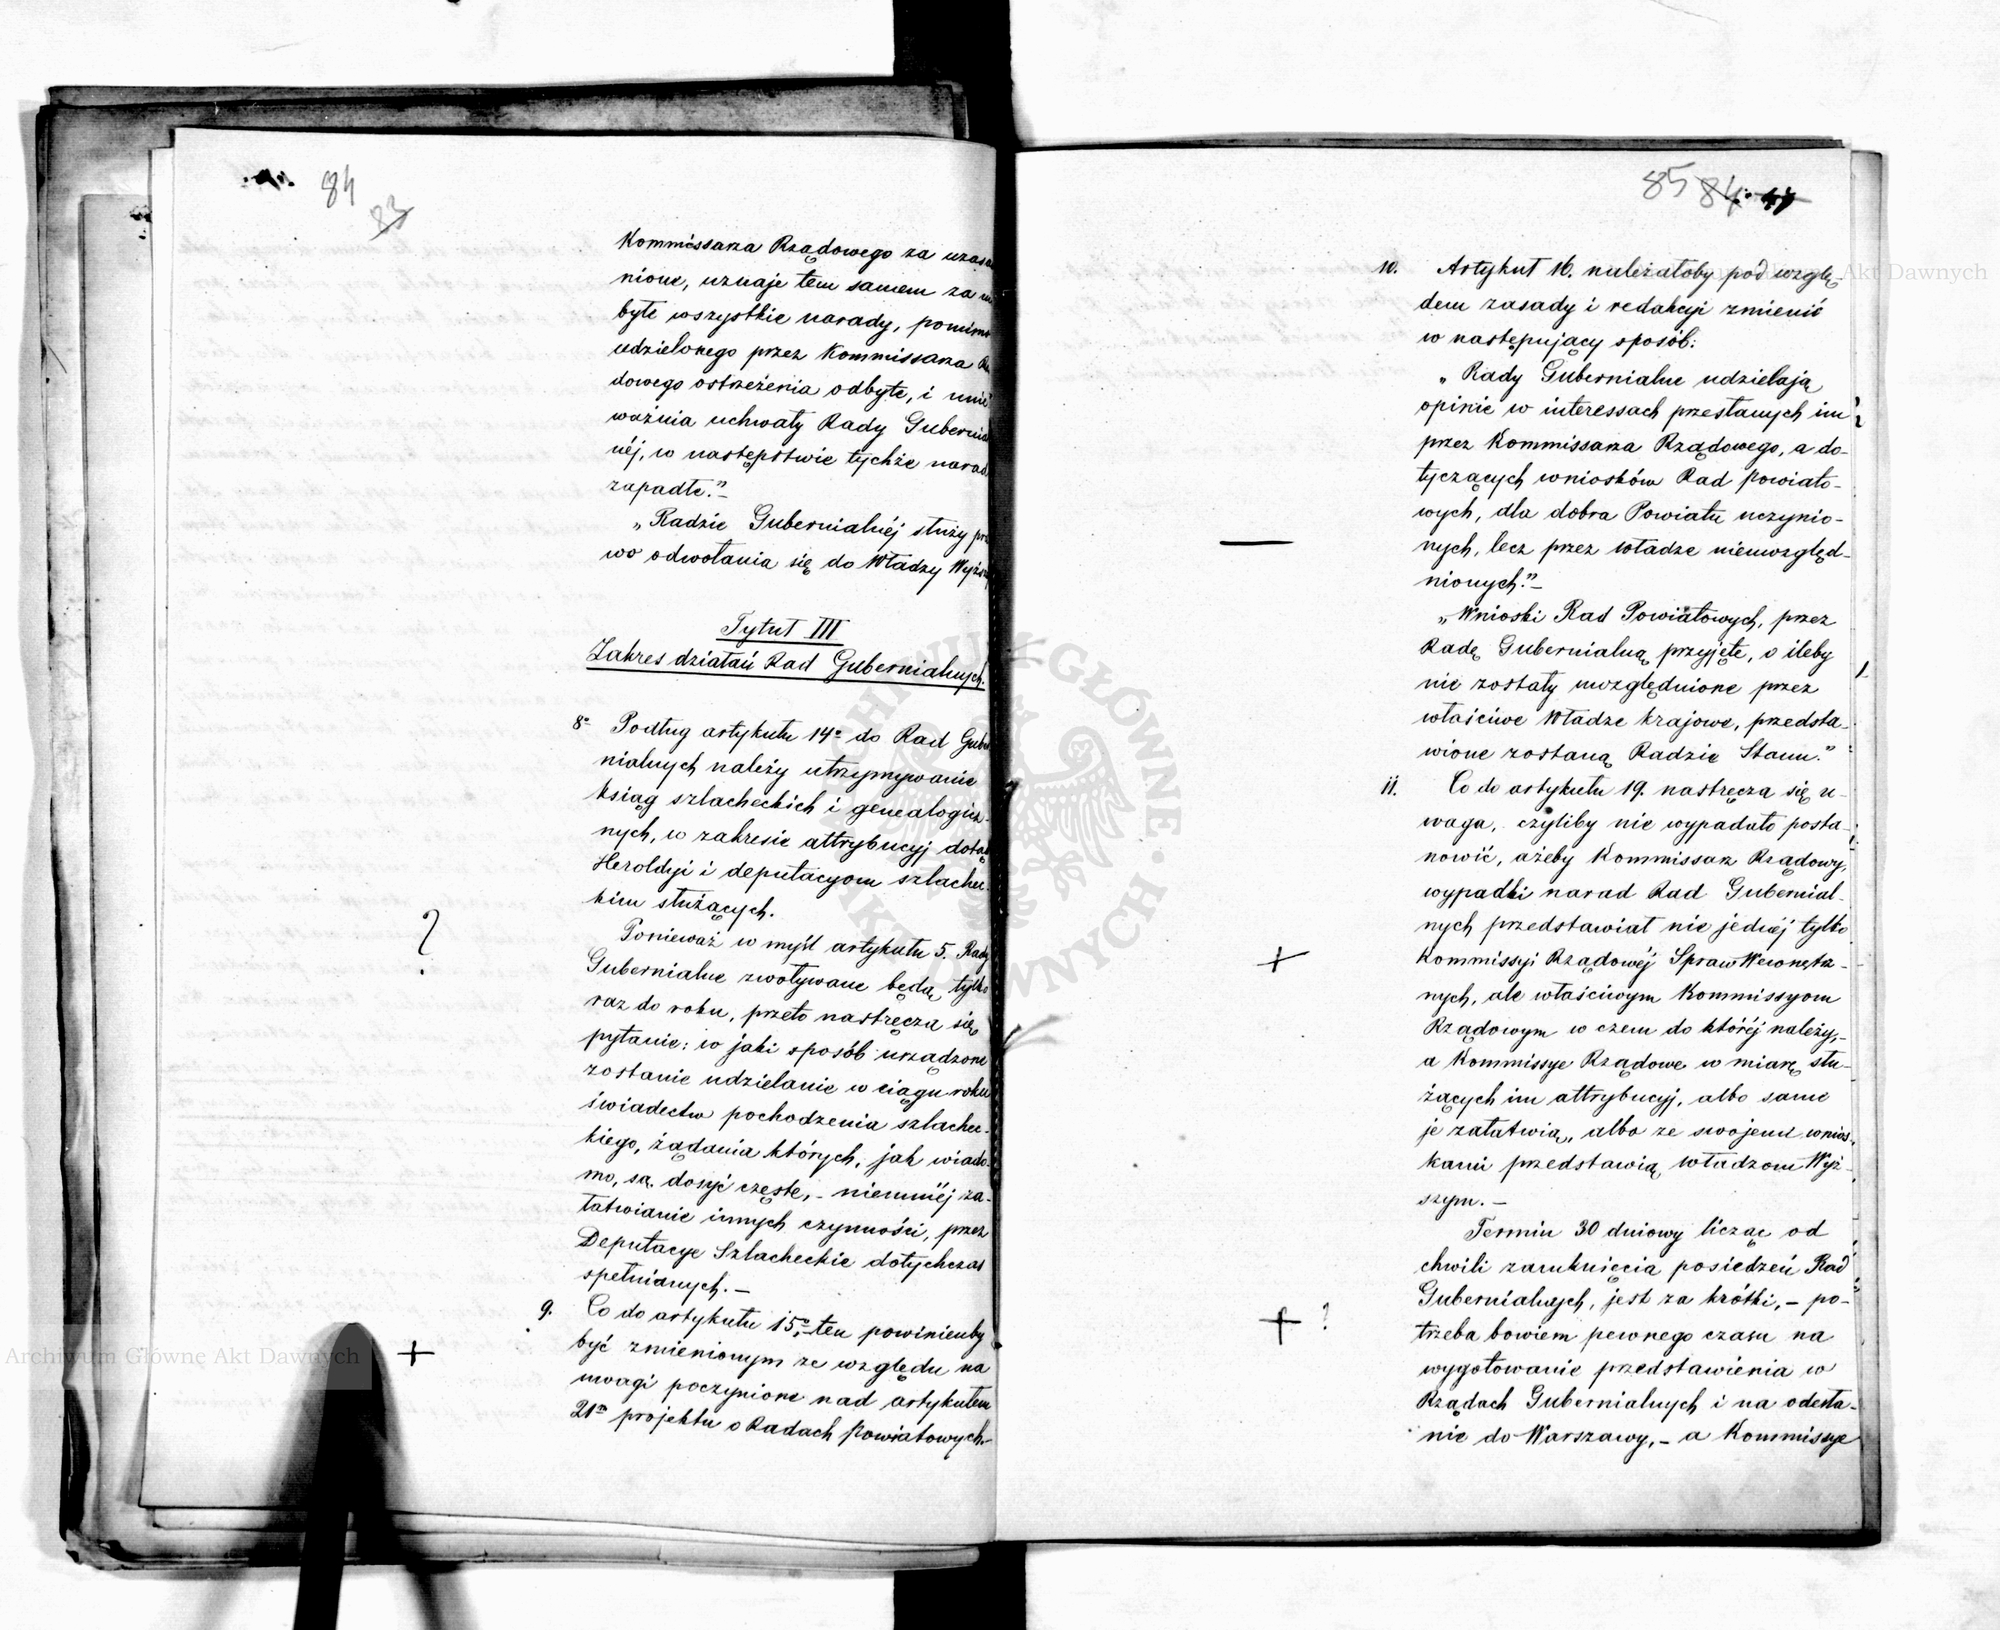 84
83
Kommissarza Rządowego za uzasa
nione, uznaje tem samem za
byłe wszystkie narady, pomimo
udzielonego przez Kommissarza
dowego ostrzeżenia odbyte, i unie
ważnia uchwały Rady Gubernia
néj, w następstwie tychże narad
zapadłe."–
„Radzie Gubernialnéj służy pra
wo odwołania się do Władzy Wyższ
Tytuł III
Zakres działań Rad Gubernialnych.
8º Podług artykułu 14º do Rad Guber
nialnych należy utrzymywanie
ksiąg szlacheckich i genealogicz-
nych, w zakresie attrybucyj dotąd
Heroldyi i deputacyom szlachec-
kim służących.
?
Ponieważ w myśl artykułu 5. Rady
Gubernialne zwoływane będą tylko
raz do roku, przeto nastręcza się
pytanie: w jaki sposób urządzone
zostanie udzielanie w ciągu roku
świadectw pochodzenia szlachec-
kiego, żądania których, jak wiado-
mo, są dosyć częste, – niemniéj za-
łatwianie innych czynności, przez
Deputacye Szlacheckie dotychczas
spełnianych. –
9. Co do artykułu 15º, – ten powinienby
+ być zmienionym ze względu na
uwagi poczynione nad artykułem
21m projektu o Radach Powiatowych.–
85 84
10. Artykuł 16. należałoby pod wzglę-
dem zasady i redakcyi zmienić
w następujący sposób:
„Rady Gubernialne udzielają
opinie w interessach przesłanych im
przez Kommissarza Rządowego, a do-
tyczących wniosków Rad Powiato-
wych, dla dobra Powiatu uczynio-
— nych, lecz przez władze nieuwzględ-
nionych."–
„Wnioski Rad Powiatowych, przez
Radę Gubernialną przyjęte, o ileby
nie zostały uwzględnione przez
właściwe Władze krajowe, przedsta-
wione zostaną Radzie Stanu."
11. Co do artykułu 19. nastręcza się u-
waga, czyliby nie wypadało posta-
nowić, ażeby Kommissarz Rządowy,
wypadki narad Rad Gubernial-
nych przedstawiał nie jednéj tylko
+ Kommissyi Rządowéj Spraw Wewnętrz-
nych, ale właściwym Kommissyom
Rządowym w czem do któréj należy,–
a Kommissye Rządowe w miarę słu-
żących im attrybucyj, albo same
je załatwią, albo ze swojemi wnios-
kami przedstawią władzom Wyż-
szym. –
Termin 30 dniowy licząc od
chwili zamknięcia posiedzeń Rad
Gubernialnych, jest za krótki, – po-
+ ? trzeba bowiem pewnego czasu na
wygotowanie przedstawienia w
Rządach Gubernialnych i na odesła-
nie do Warszawy, – a Kommissye
Archiwum Główne Akt Dawnych
ARCHIWUM GŁÓWNE AKT DAWNYCH
Akt Dawnych